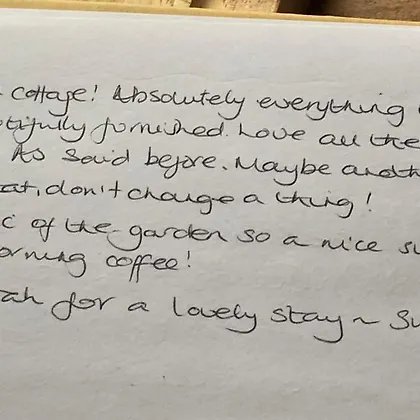 cottage! Absolutely everything
furnished. Love all the
As said before. Maybe
don't change a thing!
of the garden so a nice
coffee!
for a lovely stay ~